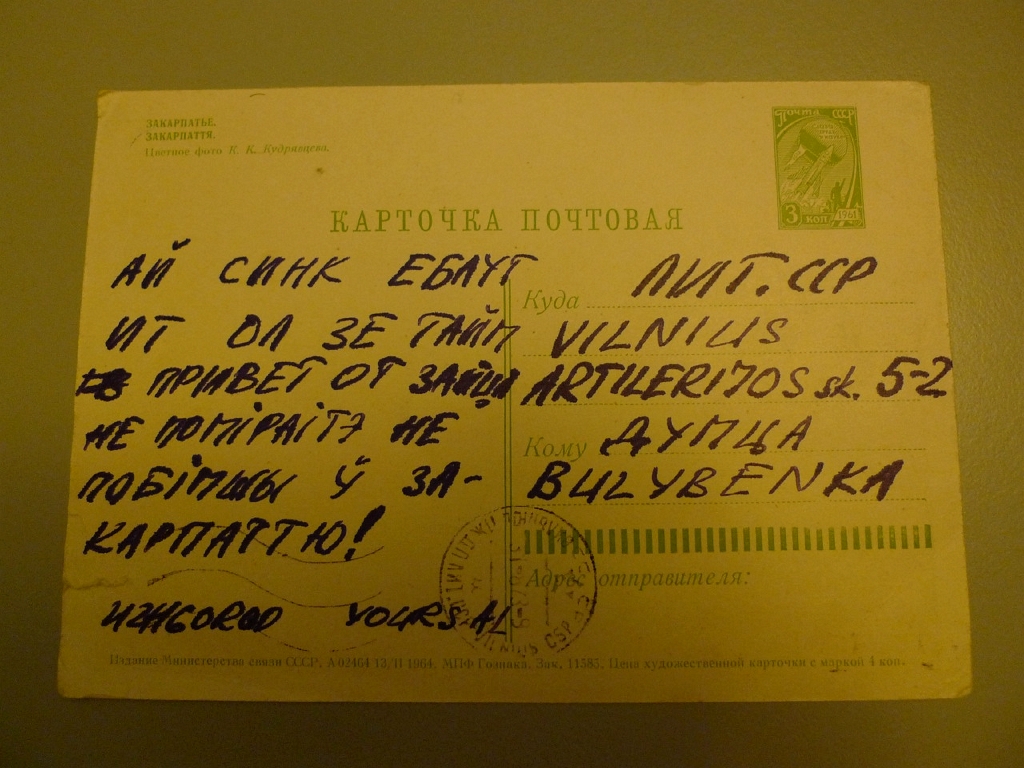 ЗАКАРПАТЬЕ.
ЗАКАРПАТТЯ.
Цветное фото К. К. Кудрявцева.
ПОЧТА СССР
3 КОП
1961
КАРТОЧКА ПОЧТОВАЯ
АЙ СИНК ЕБАУТ
ИТ ОЛ ЗЕ ТАЙМ
ПРИВЕТ ОТ ЗАЙЦА
НЕ ПОМІРАІТЭ НЕ
ПОБІМШЫ Ў ЗА-
КАРПАТТЮ!
UZHGOROD YOURS AL
Куда ЛИТ. ССР
VILNIUS
ARTILERIJOS sk. 5-2
Кому ДУМЦА
BULYBENKA
Адрес отправителя:
VILNIUS
Издание Министерства связи СССР. А 02464 13/II 1964. МПФ Гознака. Зак. 11585. Цена художественной карточки с маркой 4 коп.